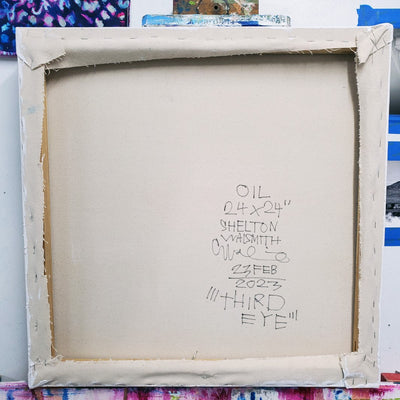 OIL
24x24"
SHELTON
WALSMITH
23 FEB
2023
"'THIRD
EYE'"